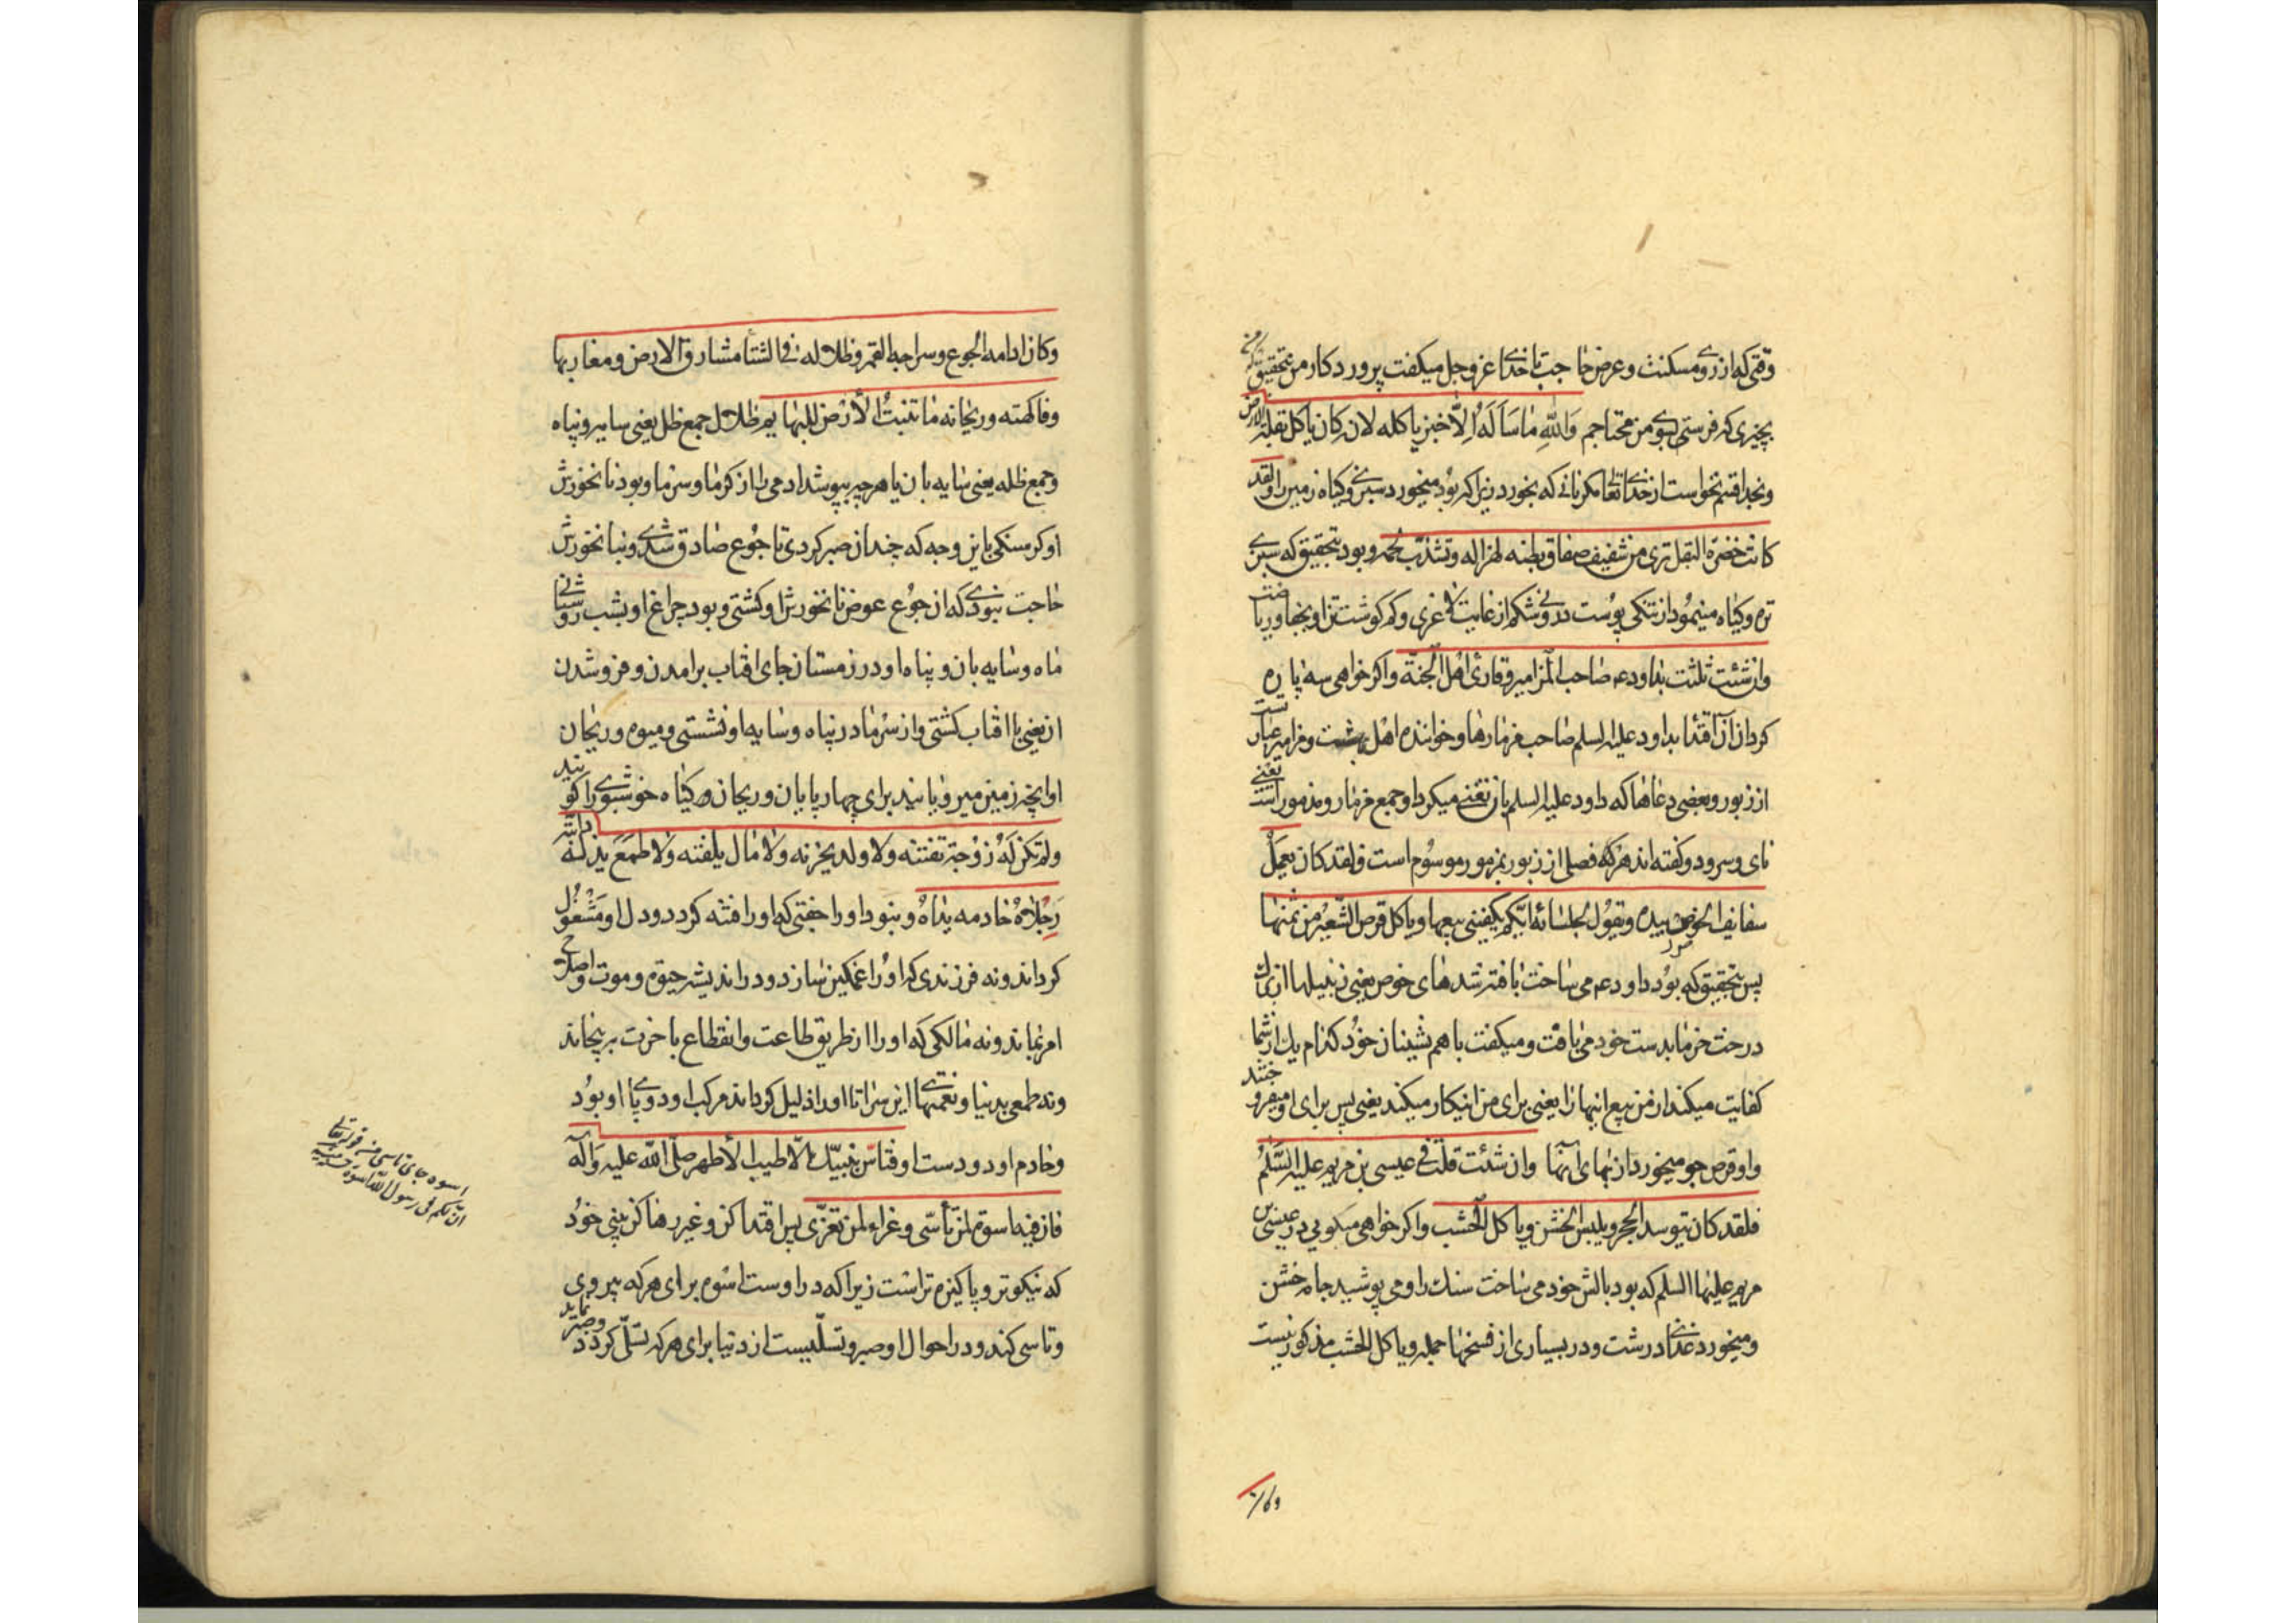 وقتی که از روی مسکنت و عرض حاجت با خدای عز و جل میکفت پروردکار من بتحقیق که من
بچیزی که فرستی بسوی من محتاجم وَاللهِ مَا سَأَلَهُ اِلَّا خبزًا یاکله لانه کان یاکل بقلة الارض
و بخدا قسم نخواست از خدای تعالی مکر نانی که بخورد زیرا که بود میخورد سبزی و کیاه زمین را و لقد
کانت خضرة البقل تری من شفیف صفاق بطنه لهزاله و تشذّب لحمه و بود بتحقیق که سبزی
تره و کیاه مینمود از تنکی پوست درونی شکم از غایت لاغری و کم کوشت تن او بجفا و ریاضت
وان شئت ثلثت بداود عم صاحب المزامیر و قاری اهل الجنة و اکر خواهی سه پاره
کردان آن اقتدا بداود علیه السلم صاحب مزمارها و خواننده اهل بهشت و مزامیر عبارتست
از زبور و بعضی دعاها که داود علیه السلم بان تغنی میکرد او جمع مزمار و مزمور است یعنی
نای و سرود و کفته اند هر که فصلی از زبور بمزمور موسوم است و لقد کان یعمل
سفایف الخوص بیده و یقول لجلسائه ایّکم یکفینی بیعها و یاکل قرص الشعیر من ثمنها
پس بتحقیق که بود داود عم می ساخت بافته شدهای خوص یعنی زنبیلها از برک
درخت خرما بدست خود می بافت و میکفت با هم نشینان خود کدام یک از شما
کفایت میکند از من بیع اینها را یعنی برای من اینکار میکند یعنی پس برای او میفروختند
و او قرص جو میخورد از بهای آنها وان شئت قلت فی عیسی بن مریم علیه السَّلَمُ
فلقد کان یتوسد الحجر و یلبس الخشن و یاکل الخشب و اکر خواهی میکویی در عیسی بن
مریم علیهما السلم که بود بالش خود می ساخت سنک را و می پوشید جامه خشن
و میخورد غذای درشت و در بسیاری از نسخها جمله و یاکل الخشب مذکور نیست
وکان
وکان ادامه الجوع و سراجه القمر و ظلاله فی الشتا مشارق الارض و مغاربها
و فاکهته و ریحانه ما تنبت الأرض للبهایم ظلال جمع ظل یعنی سایه و پناه
و جمع ظله یعنی سایه بان یا هر چه بپوشد ادمی را از کرما و سرما و بود نانخورش
او کرسنکی باین وجه که چندان صبر کردی تا جوع صادق شدی و بنانخورش
حاجت نبودی که ان جوع عوض نانخورش او کشتی و بود چراغ او بشب روشنائی
ماه و سایه بان و پناه او در زمستان جای افتاب برامدن و فرو شدن
ان یعنی با افتاب کشتی و از سرما در پناه و سایه او نشستی و میوه و ریحان
او انچه زمین میرویانید برای چهارپایان و ریحان و کیاه خوشبوی را کویند
ولم تکن لَهُ زوجة تفتنه ولا ولد یحزنه ولا مال یلفته ولا طمع یذله دابته
رجلاه خادمه یداه و نبود او را جفتی که او را فتنه کردد و دل او مشغول
کرداند و نه فرزندی که او را غمکین سازد و در اندیشه حیوة و موت و اصلاح
امر بماند و نه مالکی که او را از طریق طاعت و انقطاع باخرت بر پیچاند
و نه طمعی بدنیا و نعمتهای این سرا تا او را ذلیل کرداند مرکب او دو پای او بود
و خادم او دو دست او فتاسّ بنبیّک الاطیب الأطهر صلّی الله علیه وآله
فان فیه اسوة لمن تأسّی و عزاء لمن تعزّی پس اقتدا کن و غیر رها کن نبی خود
که نیکوتر و پاکیزه تر است زیرا که در اوست اسوه برای هر که پیروی
و تاسی کند و در احوال او صبر و تسلّیست از دنیا برای هر که تسلّی کردد و صبر نماید
اسوه جای تاسی منه قوله تعالی
ان لکم فی رسول الله اسوة حسنة